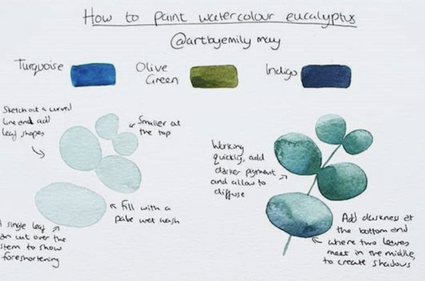 How to paint watercolour eucalyptus
@artbyemily may
Turquoise
Olive
Green
Indigo
Sketch out a curved
line and add
leaf shapes
Smaller at
the top
Fill with a
pale wet wash
A single leaf
can cut over the
stem to show
foreshortening
Working
quickly, add
darker pigment
and allow to
diffuse
Add darkness at
the bottom and
where two leaves
meet in the middle,
to create shadows